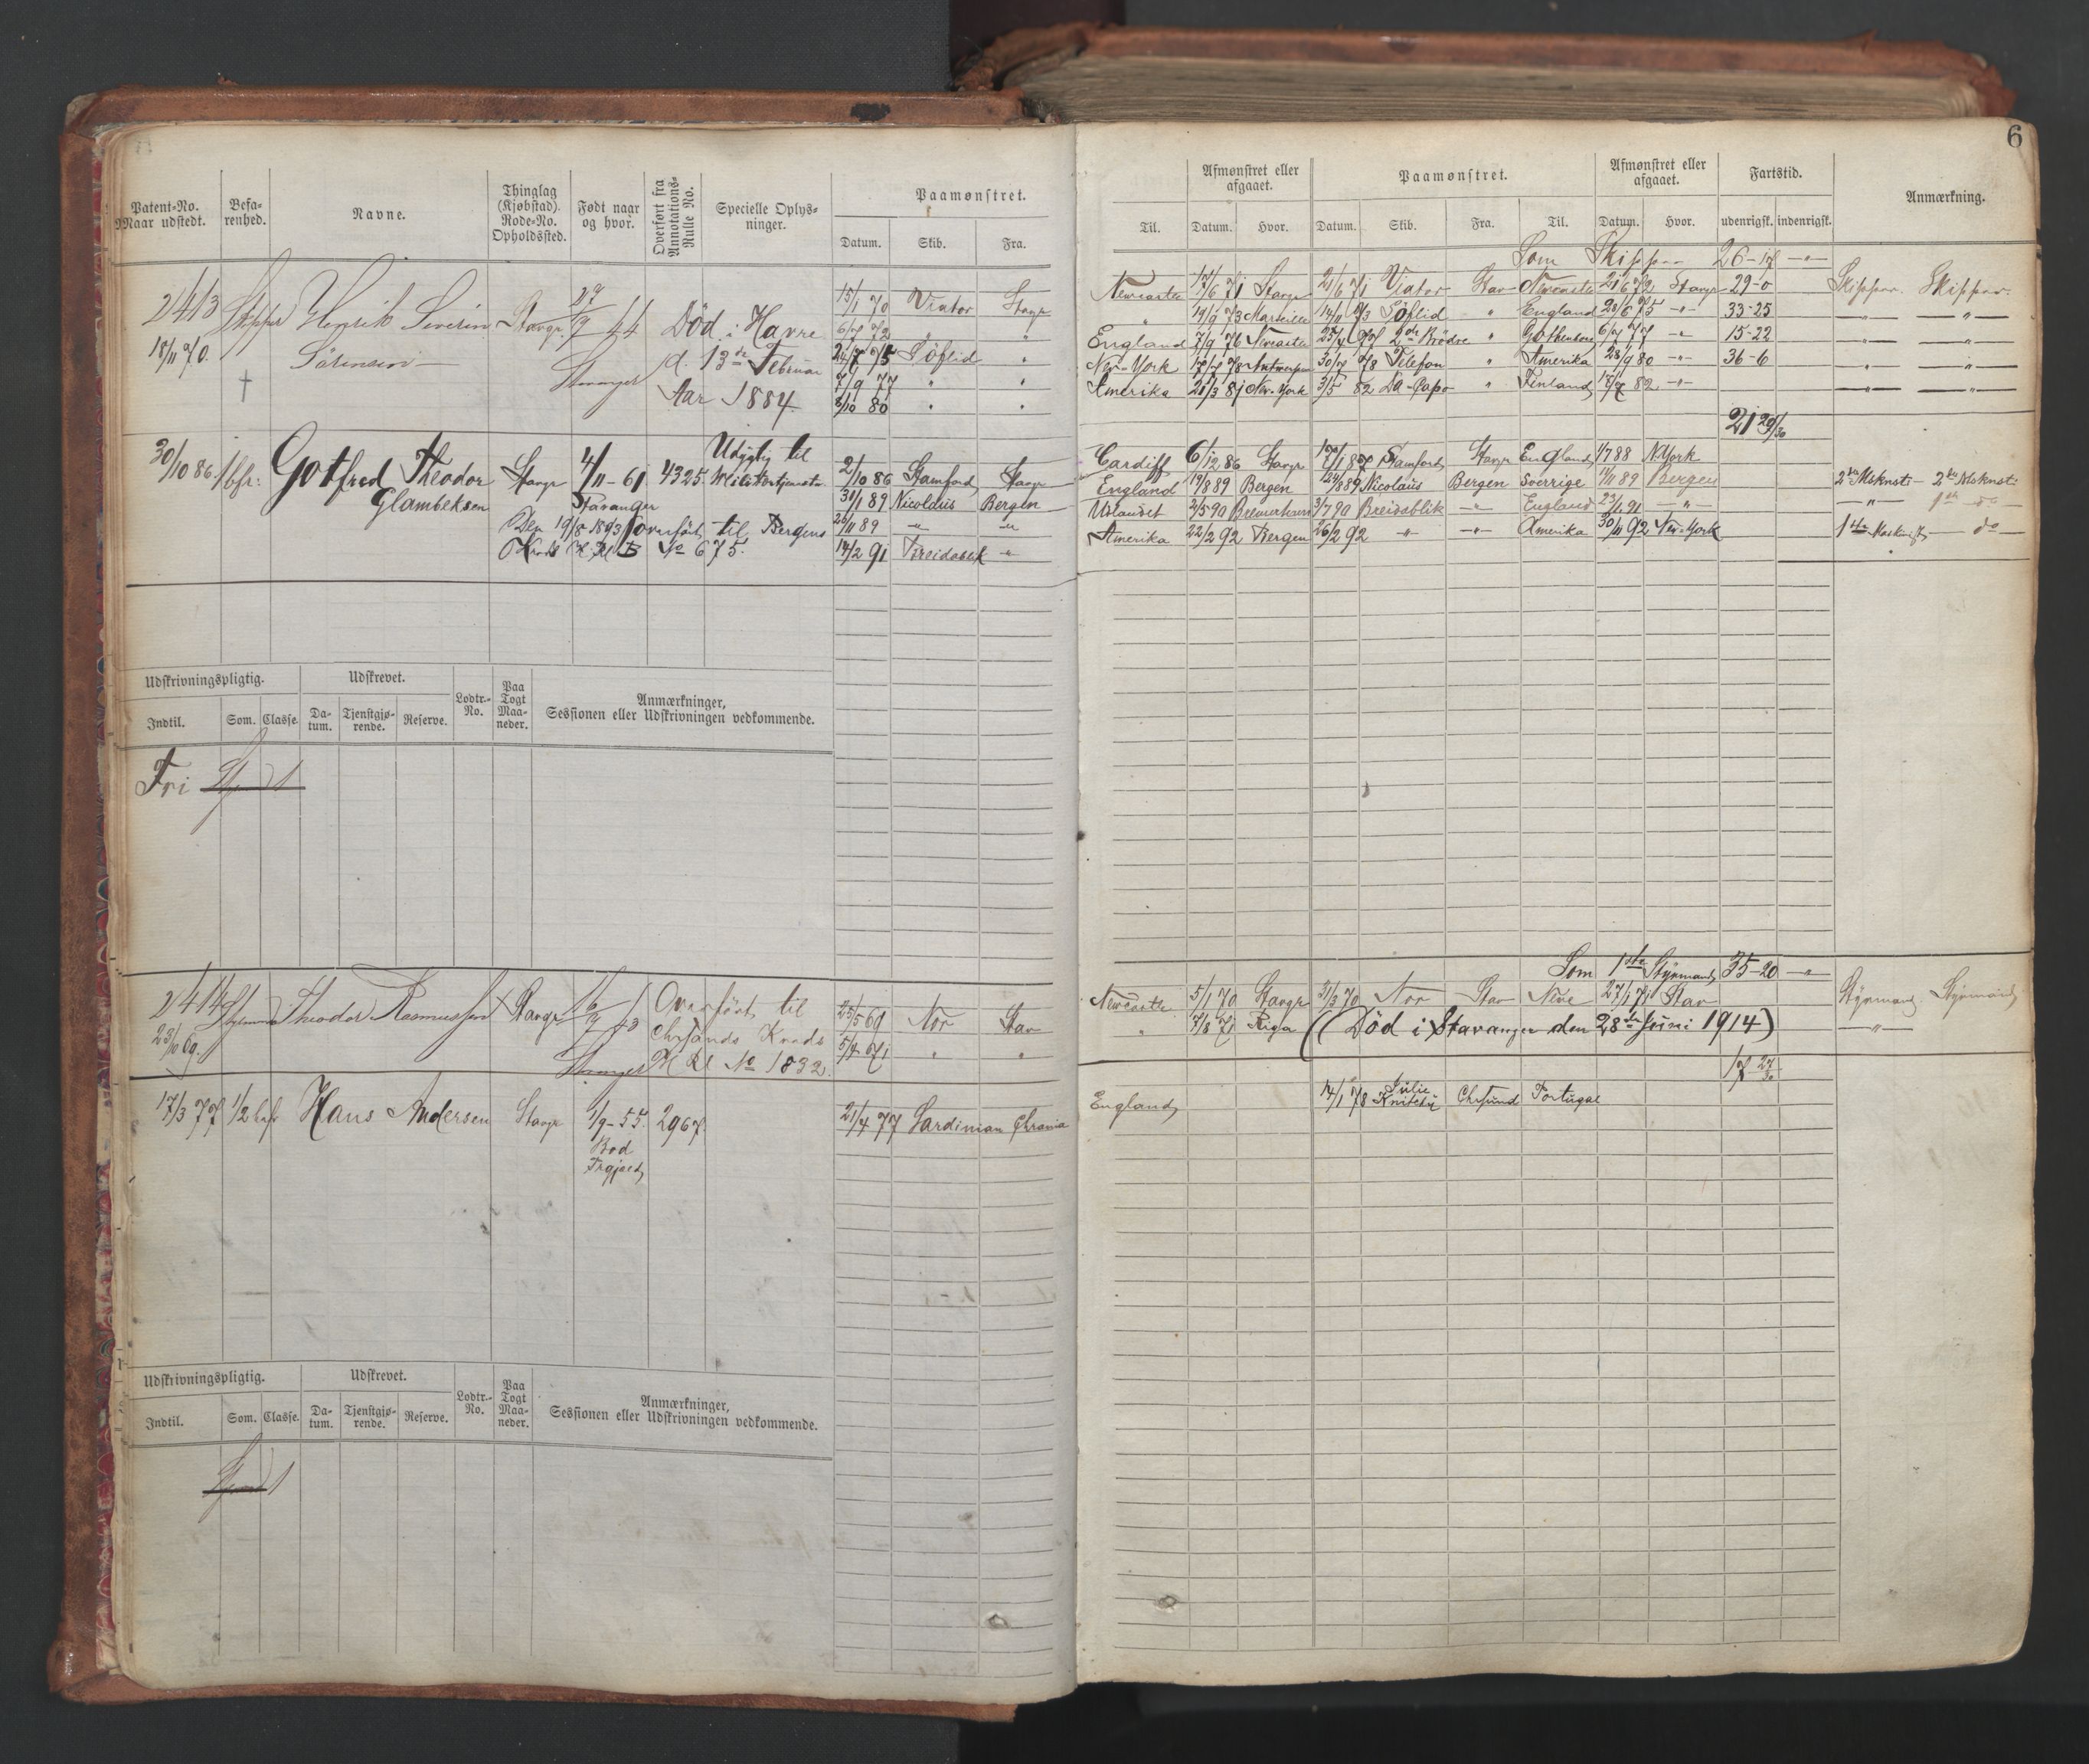 6
Patent-No. Naar udstedt. Befarenhed. Navne. Thinglag (Kjøbstad). Rode-No. Opholdssted. Født naar og hvor. Overført fra Annotations-Rulle No. Specielle Oplysninger. Paamønstret. Datum. Skib. Fra.
Til. Afmønstret eller afgaaet. Datum. Hvor. Paamønstret. Datum. Skib. Fra. Til. Afmønstret eller afgaaet. Datum. Hvor. Fartstid. udenrigsk. indenrigsk. Anmærkning.
Som Skipper 26-17 -"-
2413 Skipper Henrik Severin Stavgr 27/9 44 Død i Havre 15/1 70 Viator Stavgr
18/11 70. Sörensen Stavanger d. 13de Februar 6/7 72 " "
† Aar 1884 24/7 75 Söflid "
7/9 77 " "
8/10 80 " "
Newcastle 17/6 71 Stavgr 21/6 71 Viator Stav Newcastle 21/6 72 Stavgr 29-0 Skipper Skipper
" 19/9 73 Marseille 14/11 73 Söflid " England 28/6 75 -"- 33-25 -"- -"-
England 7/9 76 Newcastle 2de Brödre " Gothenborg 6/7 77 -"- 15-22 -"- -"-
New-York Antwerpen 30/7 78 Telefon " Amerika 28/9 80 -"- 36-6 -"- -"-
Amerika 21/3 81 New-York 3/5 82 Da-Capo " Finland 18/7 82 -"- -"- -"-
21 29/30
30/10 86. Gotfred Theodor Glambeksen Stavgr 4/11-61 Stavanger 4325. Udygtig til Militærtjeneste 2/10 86 Stamford Stavgr
31/1 89 Nicolaus Bergen
Den 19/8 1893 overfört til Bergens 20/11 89 -"- -"-
Krods H Rl B No 675. 14/2 91 Breidablik -"-
Cardiff 6/12 86 Stavgr Stamford Stavgr England 1/7 88 N.York
England 19/8 89 Bergen 29/8 89 Nicolaus Bergen Sverrige 11/11 89 Bergen 2den Msknst- 2den Msknst-
Udlandet 2/5 90 Bremerhaven 3/7 90 Breidablik -"- England 23/1 91 -"- -"- 1ste do
Amerika 22/2 92 Bergen 26/2 92 -"- -"- Amerika 30/11 92 N.-York 1ste Maskinist do
Udskrivningspligtig. Udskrevet. Lodtr.-No. Paa Togt Maaneder. Anmærkninger, Sessionen eller Udskrivningen vedkommende.
Indtil. Som. Classe. Datum. Tjenstgjørende. Reserve.
Fri
Som 1ste Styrmand 35-20 -"-
2414 Theodor Rasmussen Stavgr Stavanger Overfört til 25/5 69 Nor Stav
23/10 69. Chrsands Krods 5/4 71 " "
H Rl No 1832.
Newcastle 5/1 70 Stavgr 31/3 70 Nor Stav 27/1 71 Stav Styrmand Styrmand
" 7/8 71 Riga (Död i Stavanger den 28de Juni 1914) -"-
17 27/30
17/3 77 1/2 bef Hans Andersen Stavgr 1/9-55. 2967. 21/4 77 Sardinian Chrania
England 14/1 78 Julie Chrsund Portugal
Udskrivningspligtig. Udskrevet. Lodtr.-No. Paa Togt Maaneder. Anmærkninger, Sessionen eller Udskrivningen vedkommende.
Indtil. Som. Classe. Datum. Tjenstgjørende. Reserve.